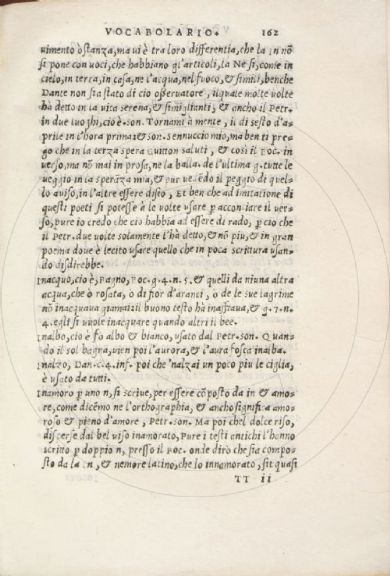 VOCABOLARIO. 162
uimento o stanza, ma ui è tra loro differentia, che la in nõ
si pone con uoci, che habbiano gl'articoli, la Ne sì, come in
cielo, in terra, in casa, ne l'acqua, nel fuoco, & simili, benche
Dante non sia stato di ciò osseruatore, ilquale molte uolte
hà detto in la uita serena, & simiglianti, & ancho il Petr.
in due luoghi, cio è. son. Tornami à mente, il di sesto d'a-
prile in l'hora prima: & son. sennuccio mio, ma ben ti pre-
go che in la terza spera Guitton saluti, & cosi il Boc. in
uerso, ma nõ mai in prosa, ne la balla. de l'ultima g. tutte le
ueggio in la sperãza mia, & pur uedẽdo il peggio di quel-
lo auiso, in l'altre essere disio, Et ben che ad imitatione di
questi poeti si potesse à le uolte usare p acconciare il uer-
so, pure io credo che ciò habbia ad essere di rado, p ciò che
il Petr. due uolte solamente l'hà detto, & nõ piu, & in gran
poema doue è lecito usare quello che in poca scrittura usan-
do disdirebbe.
inacquo, cio è, bagno, Boc. g. 4. n. 5. & quelli da niuna altra
acqua, che ò rosata, ò di fior d'aranci, ò de le sue lagrime
nõ inacquaua giamai: il buono testo hà inaffiaua, & g. 7. n.
4. egli si uuole inacquare quando altri il bee.
inalbo, cio è fo albo & bianco, usato dal Petr. son. Quan-
do il sol bagna, uien poi l'aurora, & l'aura fosca inalba.
inalzo, Dan. c. 4. inf. poi che 'nalzai un poco piu le ciglia,
è usato da tutti.
inamoro p uno n, si scriue, per essere cõposto da in & amo-
re, come dicemo ne l'orthographia, & ancho significa amo-
roso & pieno d'amore, Petr. son. Ma poi chel dolce riso,
discerse dal bel uiso inamorato, Pure i testi antichi l'hanno
scritto p doppio n, presso il Boc. onde dirò che sia compo-
sto da la in, & nemore latino, che lo innamorato, sit quasi
TT ii